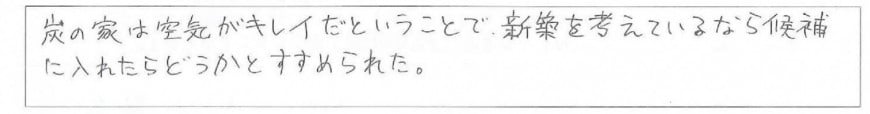 炭の家は空気がキレイだということで、新築を考えているなら候補
に入れたらどうかとすすめられた。